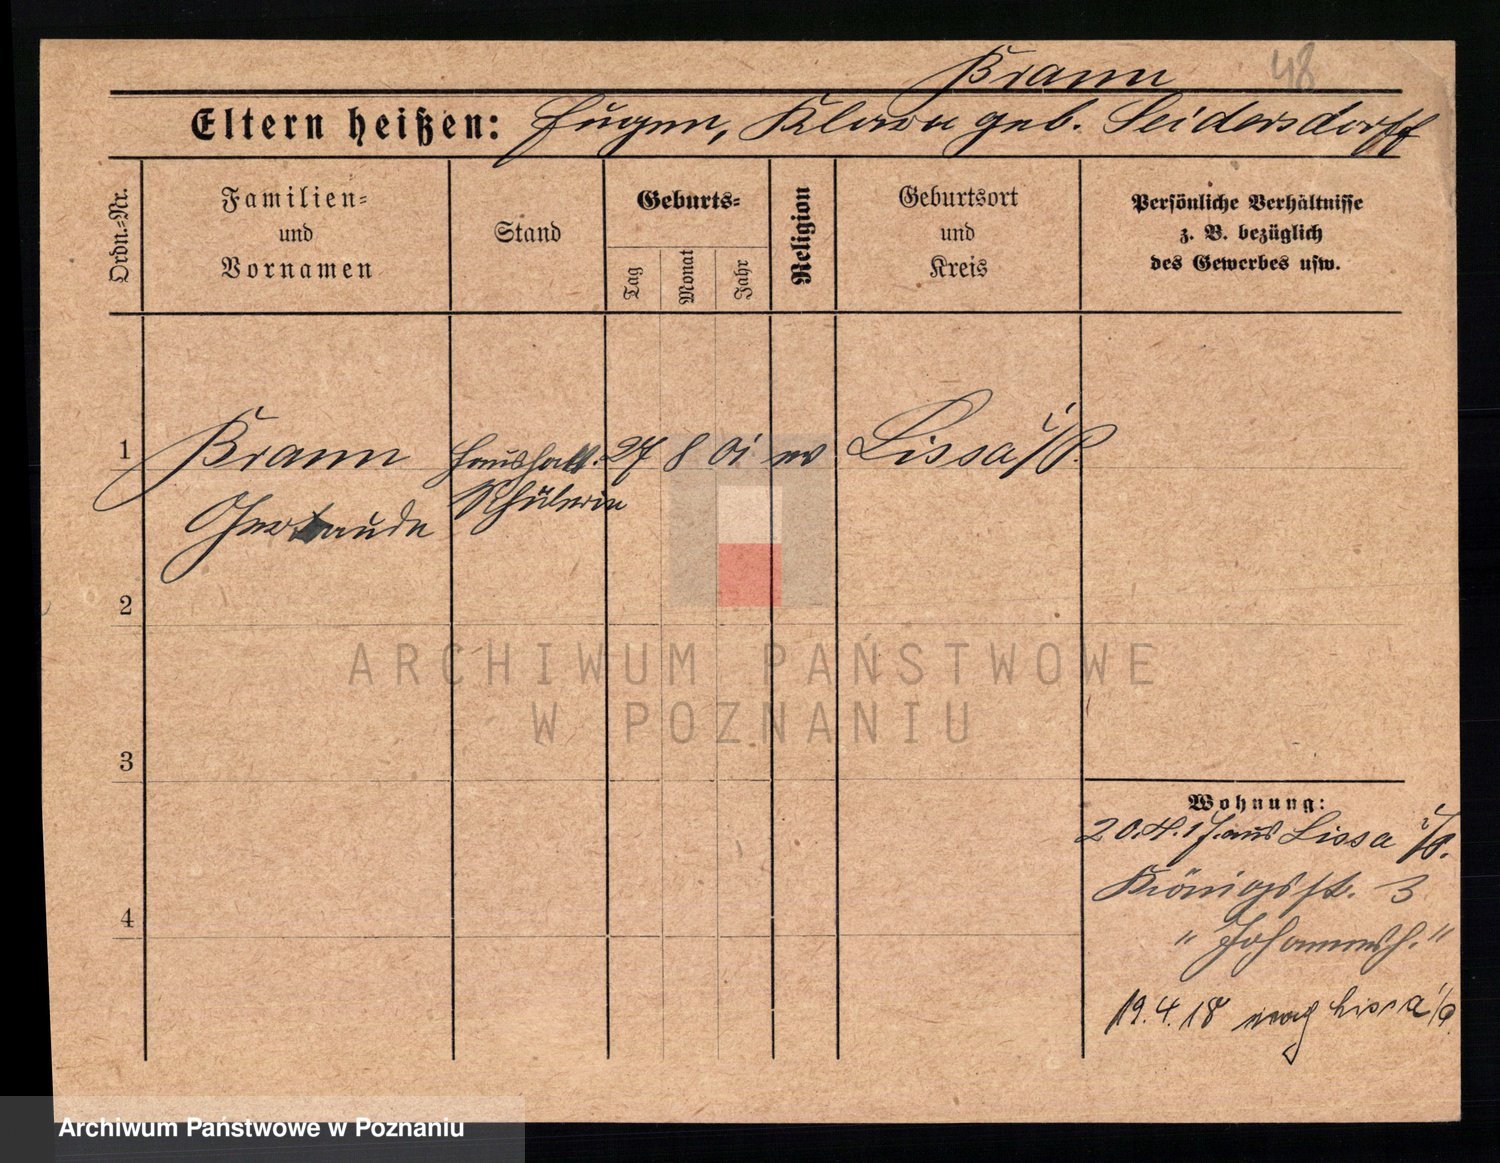 Brann 48
Eltern heißen: Eugen, Klara geb. Seidersdorff
Ordn.=Nr.
Familien=
und
Vornamen
Stand
Geburts=
Tag
Monat
Jahr
Religion
Geburtsort
und
Kreis
Persönliche Verhältnisse
z. B. bezüglich
des Gewerbes usw.
1 Brann Haushalt. 27 8 01 ev Lissa i/P.
Gertraude Schülerin
2
ARCHIWUM PAŃSTWOWE
W POZNANIU
3
Wohnung:
20.4.17. aus Lissa i/P.
Königstr. 3
" Johannesh. "
4
19.4.18 nach Lissa i/P.
Archiwum Państwowe w Poznaniu